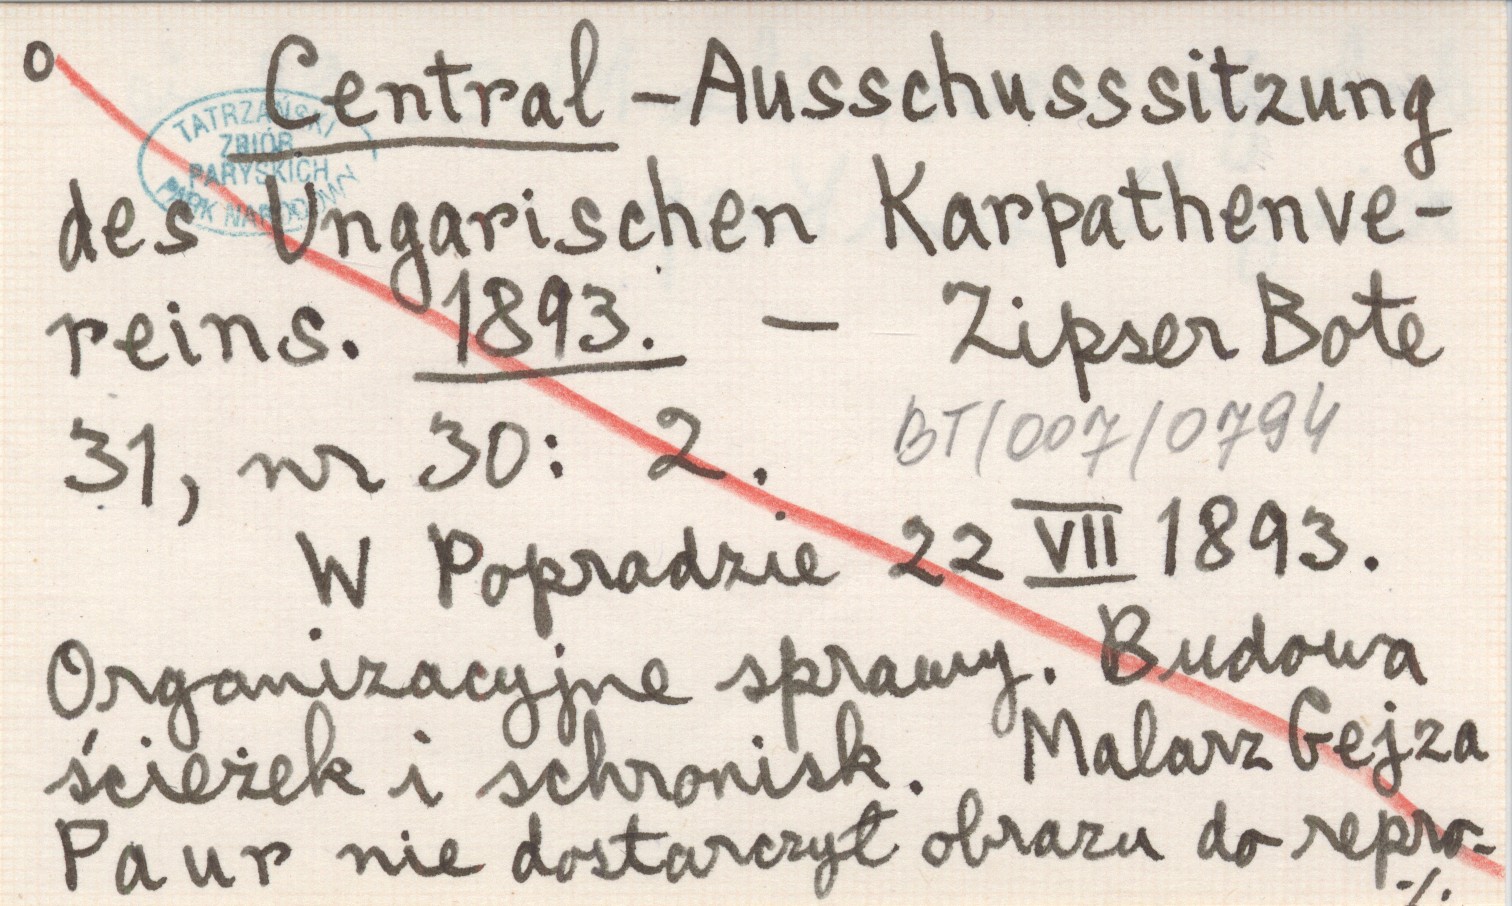 o Central - Ausschusssitzung
TATRZAŃSKI
ZBIÓR
PARYSKICH
PARK NARODOWY
des Ungarischen Karpathenve-
reins. 1893. - Zipser Bote
31, nr 30: 2. BT/007/0794
W Popradzie 22 VII 1893.
Organizacyjne sprawy. Budowa
ścieżek i schronisk. Malarz Gejza
Paur nie dostarczył obrazu do repro-
·/.